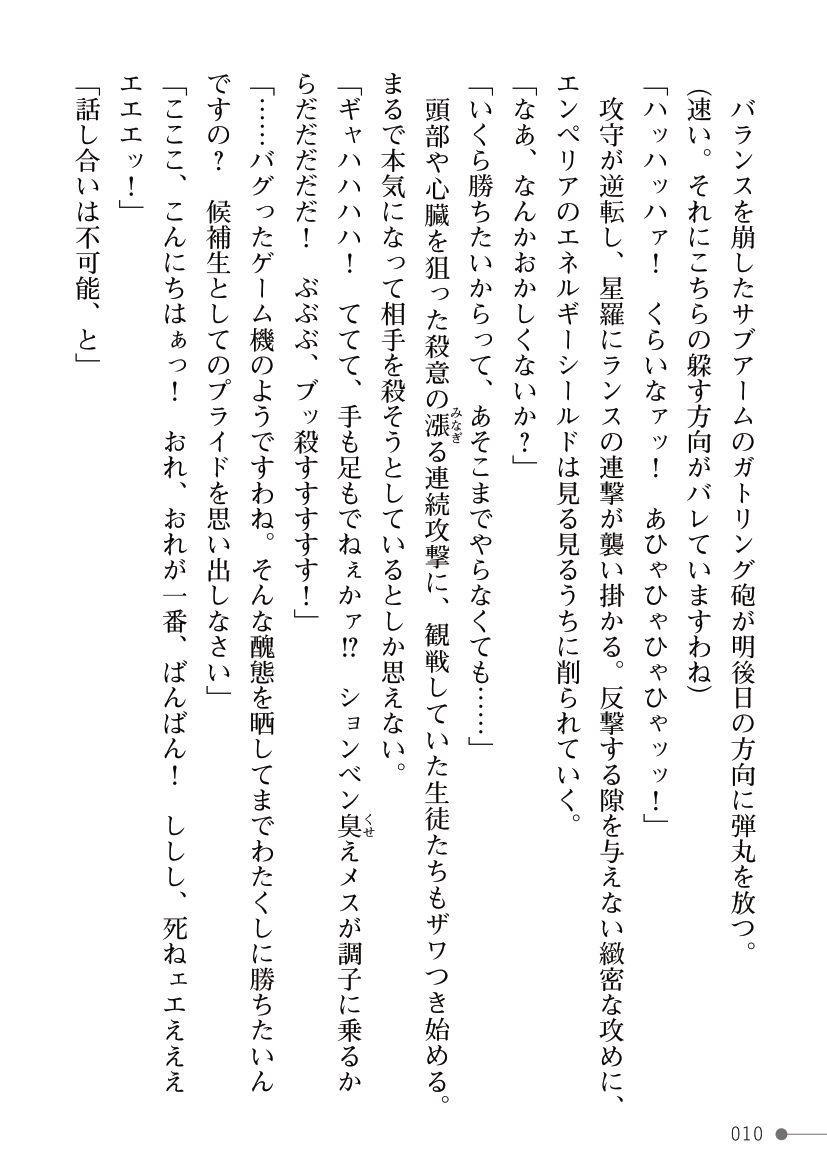 バランスを崩したサブアームのガトリング砲が明後日の方向に弾丸を放つ。
(速い。それにこちらの躱す方向がバレていますわね)
「ハッハッハァ!　くらいなァッ!　あひゃひゃひゃひゃッッ!」
攻守が逆転し、星羅にランスの連撃が襲い掛かる。反撃する隙を与えない緻密な攻めに、
エンペリアのエネルギーシールドは見る見るうちに削られていく。
「なあ、なんかおかしくないか?」
「いくら勝ちたいからって、あそこまでやらなくても……」
頭部や心臓を狙った殺意の漲る連続攻撃に、観戦していた生徒たちもザワつき始める。
みなぎ
まるで本気になって相手を殺そうとしているとしか思えない。
「ギャハハハハ!　ててて、手も足もでねぇかァ!?　ションベン臭えメスが調子に乗るか
くせ
らだだだだだ!　ぶぶぶ、ブッ殺すすすすす!」
「……バグったゲーム機のようですわね。そんな醜態を晒してまでわたくしに勝ちたいん
ですの?　候補生としてのプライドを思い出しなさい」
「こここ、こんにちはぁっ!　おれ、おれが一番、ばんばん!　ししし、死ねェエえええ
エエエッ!」
「話し合いは不可能、と」
010